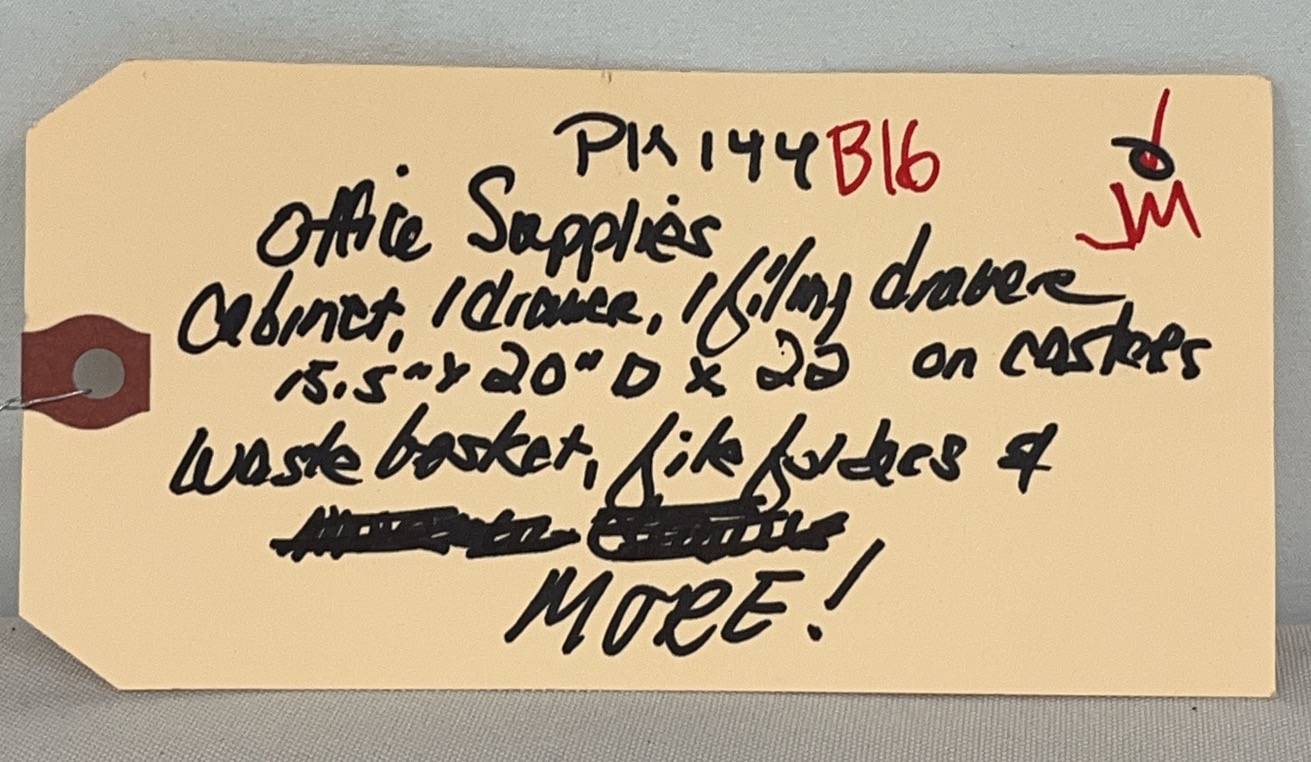 PK 144 B16
JM
Office Supplies
Cabinet, 1 drawer, 1 filing drawere
15.5" x 20" D x 22 on casters
waste basket, file folders &
MORE!